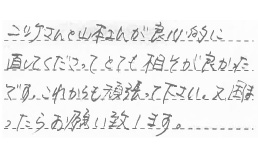 ニッタさんと山本さんが良心的に
直してくださってとても相そが良かった
です。これからも頑張って下さい。又困ま
ったらお願い致します。